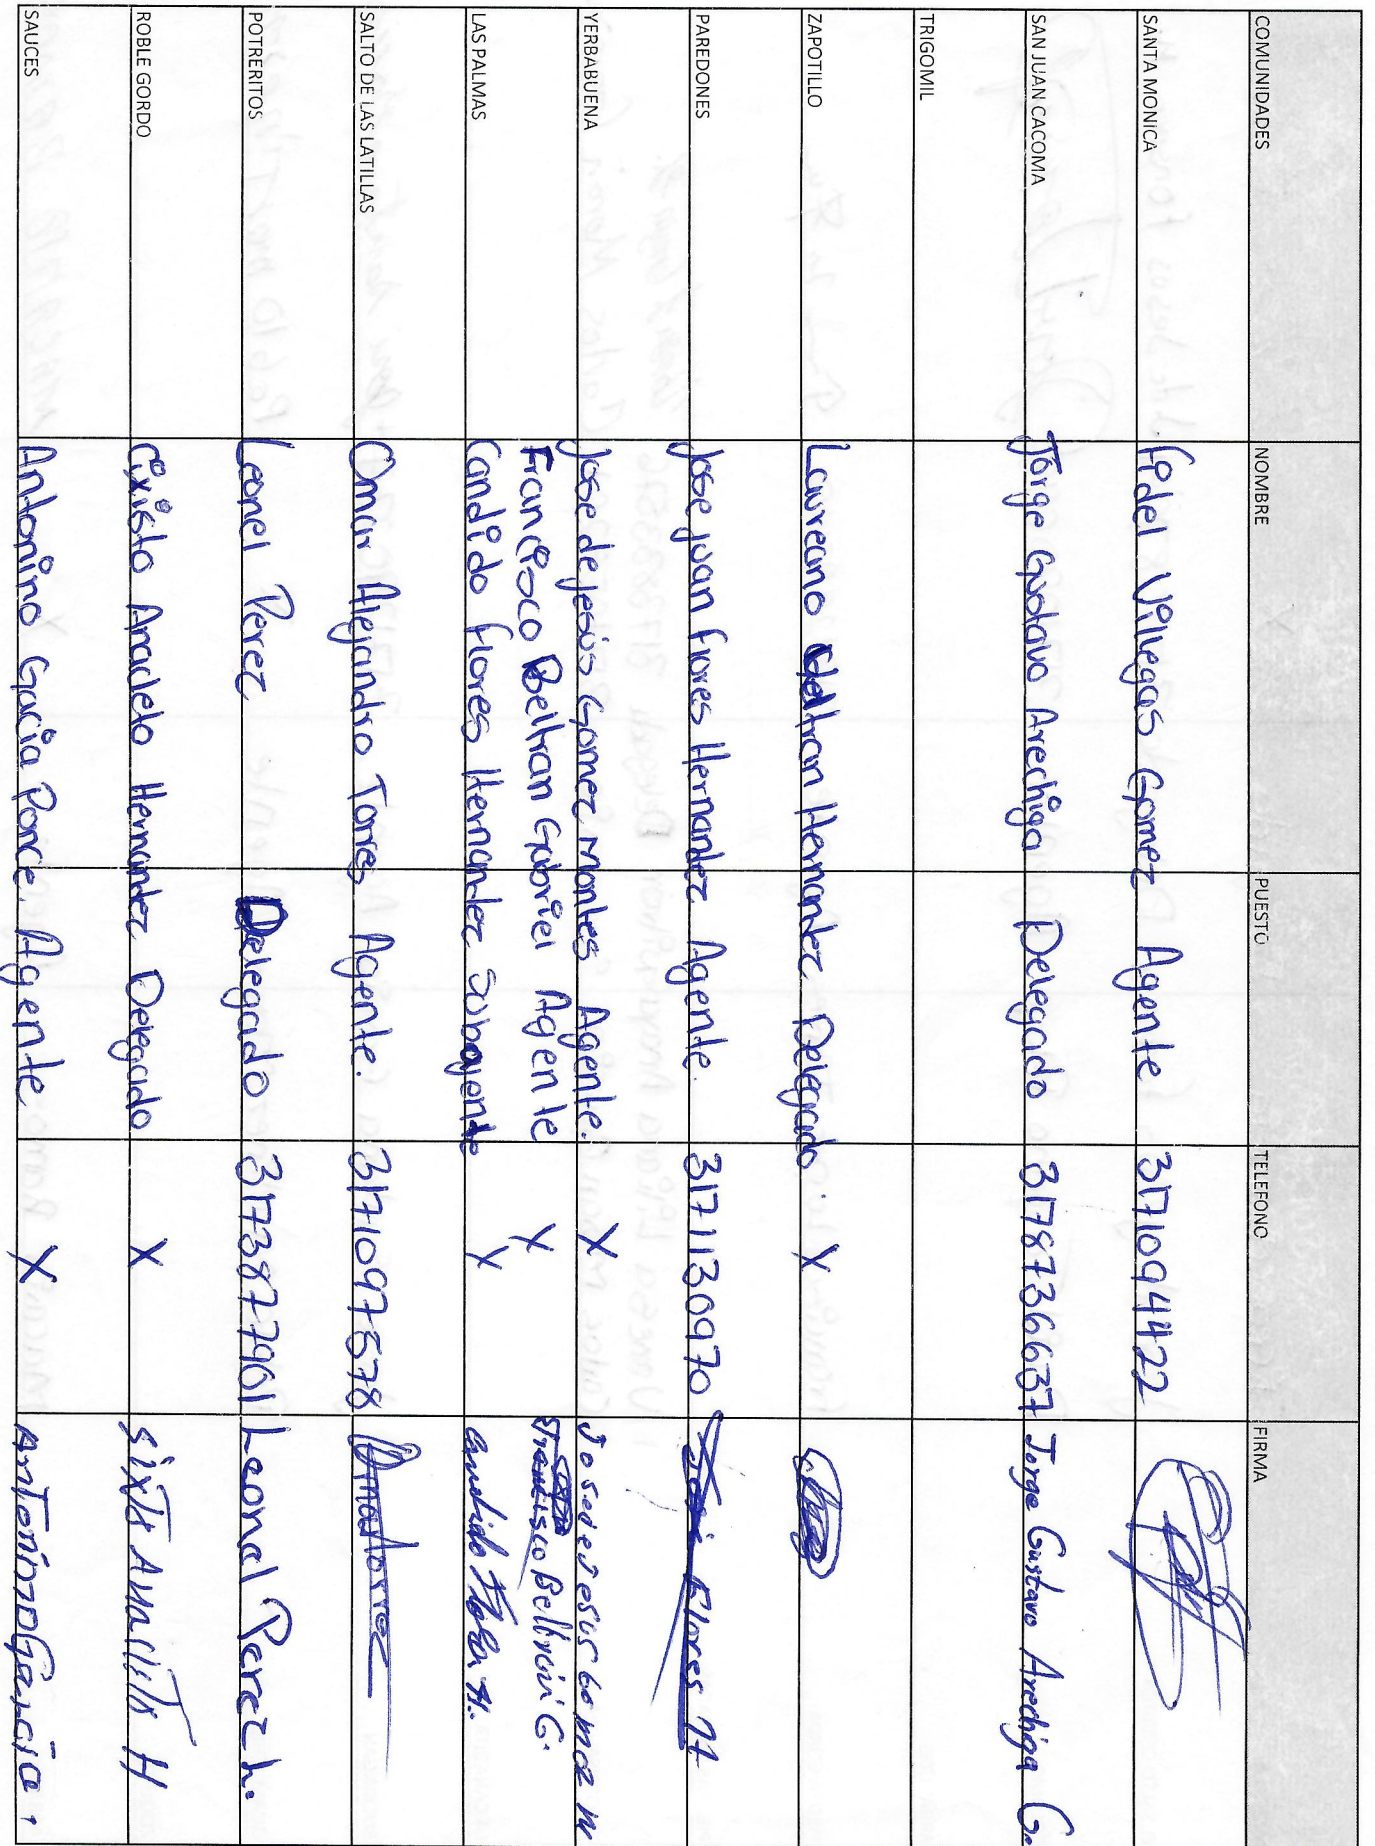 COMUNIDADES NOMBRE PUESTO TELEFONO FIRMA
SANTA MONICA Fidel Villegas Gomez Agente 3171094422
SAN JUAN CACOMA Jorge Gustavo Arechiga Delegado 3178736637 Jorge Gustavo Arechiga G.
TRIGOMIL
ZAPOTILLO Laureano Hernandez Delegado. X
PAREDONES Jose juan flores Hernandez Agente. 3171130970 José Flores H
YERBABUENA Jose de jesús Gomez Montes Agente. X Jose de Jesus Gomez M
Francisco Beltran Gabriel Agente X Francisco Beltran G.
LAS PALMAS Candido flores Hernandez Subagente X Candido Flores H.
SALTO DE LAS LATILLAS Omar Alejandro Torres Agente. 3171097578 Omar Torres
POTRERITOS Leonel Perez Delegado 3173877901 Leonel Perez h.
ROBLE GORDO Cixisto Anacleto Hernandez Delegado X Sixto Anacleto H
SAUCES Antonino Gacia Ponce. Agente X Antonino Garcia.